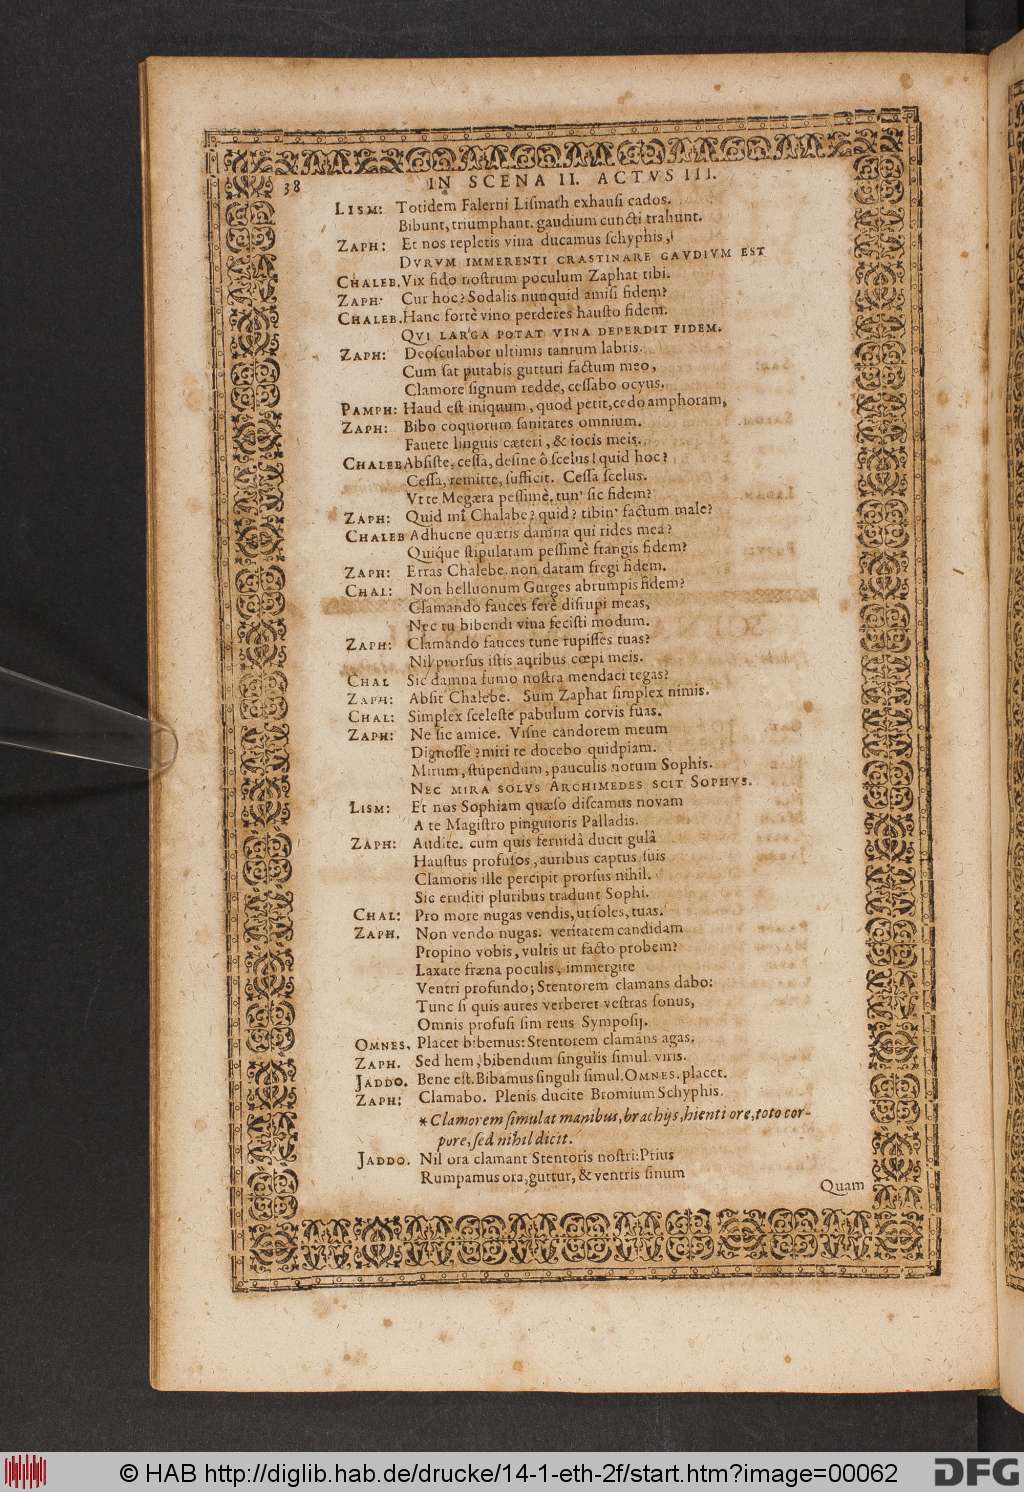 38
IN SCENA II. ACTVS III.
LISM: Totidem Falerni Lismath exhausi cados.
Bibunt, triumphant. gaudium cuncti trahunt.
ZAPH: Et nos repletis vina ducamus schyphis,
DVRVM IMMERENTI CRASTINARE GAVDIVM EST
CHALEB. Vix fido nostrum poculum Zaphat tibi.
ZAPH. Cur hoc? Sodalis nunquid amisi fidem?
CHALEB. Hanc fortè vino perderes hausto fidem.
QVI LARGA POTAT VINA DEPERDIT FIDEM.
ZAPH: Deosculabor ultimis tantum labris.
Cum sat putabis gutturi factum meo,
Clamore signum redde, cessabo ocyus.
PAMPH: Haud est iniquum, quod petit, cedo amphoram,
ZAPH: Bibo coquorum sanitates omnium.
Favete linguis cæteri, & iocis meis.
CHALEB Absiste, cessa, desine ô scelus! quid hoc?
Cessa, remitte, sufficit. Cessa scelus.
Vt te Megæra pessimè, tun' sic fidem?
ZAPH: Quid mî Chalabe? quid? tibin' factum male?
CHALEB Adhucne quæris damna qui rides mea?
Quique stipulatam pessimè frangis fidem?
ZAPH: Erras Chalebe. non datam fregi fidem.
CHAL: Non helluonum Gurges abrumpis fidem?
Clamando fauces ferè disrupi meas,
Nec tu bibendi vina fecisti modum.
ZAPH: Clamando fauces tune rupisses tuas?
Nil prorsus istis auribus cœpi meis.
CHAL Sic damna fumo nostra mendaci tegas?
ZAPH: Absit Chalebe. Sum Zaphat simplex nimis.
CHAL: Simplex sceleste pabulum corvis fuas.
ZAPH: Ne sic amice. Visne candorem meum
Dignosse? miri te docebo quidpiam.
Mirum, stupendum, pauculis notum Sophis.
NEC MIRA SOLVS ARCHIMEDES SCIT SOPHVS.
LISM: Et nos Sophiam quæso discamus novam
A te Magistro pinguioris Palladis.
ZAPH: Audite. cum quis feruidâ ducit gulâ
Haustus profusos, auribus captus suis
Clamoris ille percipit prorsus nihil.
Sic eruditi pluribus tradunt Sophi.
CHAL: Pro more nugas vendis, ut soles, tuas.
ZAPH. Non vendo nugas. veritatem candidam
Propino vobis, vultis ut facto probem?
Laxate fræna poculis, immergite
Ventri profundo; Stentorem clamans dabo:
Tunc si quis aures verberet vestras sonus,
Omnis profusi sim reus Symposij.
OMNES. Placet bibemus: Stentorem clamans agas.
ZAPH. Sed hem, bibendum singulis simul viris.
JADDO. Bene est. Bibamus singuli simul. OMNES. placet.
ZAPH: Clamabo. Plenis ducite Bromium Schyphis.
* Clamorem simulat manibus, brachijs, hienti ore, toto cor-
pore, sed nihil dicit.
JADDO. Nil ora clamant Stentoris nostri: Prius
Rumpamus ora, guttur, & ventris sinum
Quam
© HAB http://diglib.hab.de/drucke/14-1-eth-2f/start.htm?image=00062
DFG